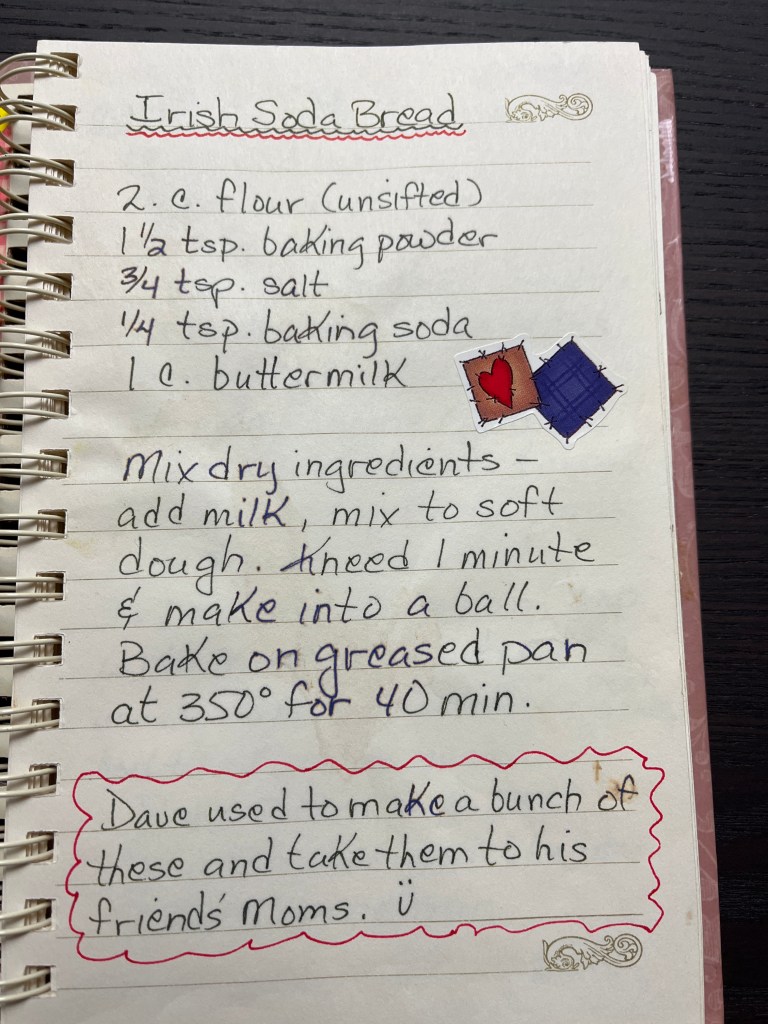 Irish Soda Bread
2. c. flour (unsifted)
1 1/2 tsp. baking powder
3/4 tsp. salt
1/4 tsp. baking soda
1 c. buttermilk
Mix dry ingredients -
add milk, mix to soft
dough. Kneed 1 minute
& make into a ball.
Bake on greased pan
at 350° for 40 min.
Dave used to make a bunch of
these and take them to his
friends' Moms. Ü